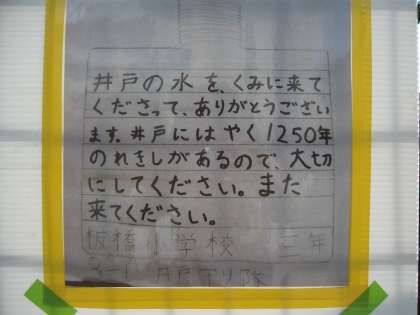 井戸の水を、くみに来て
くださって、ありがとうござい
ます。井戸にはやく1250年
のれきしがあるので、大切
にしてください。また
来てください。
板橋小学校 三年
井戸守り隊